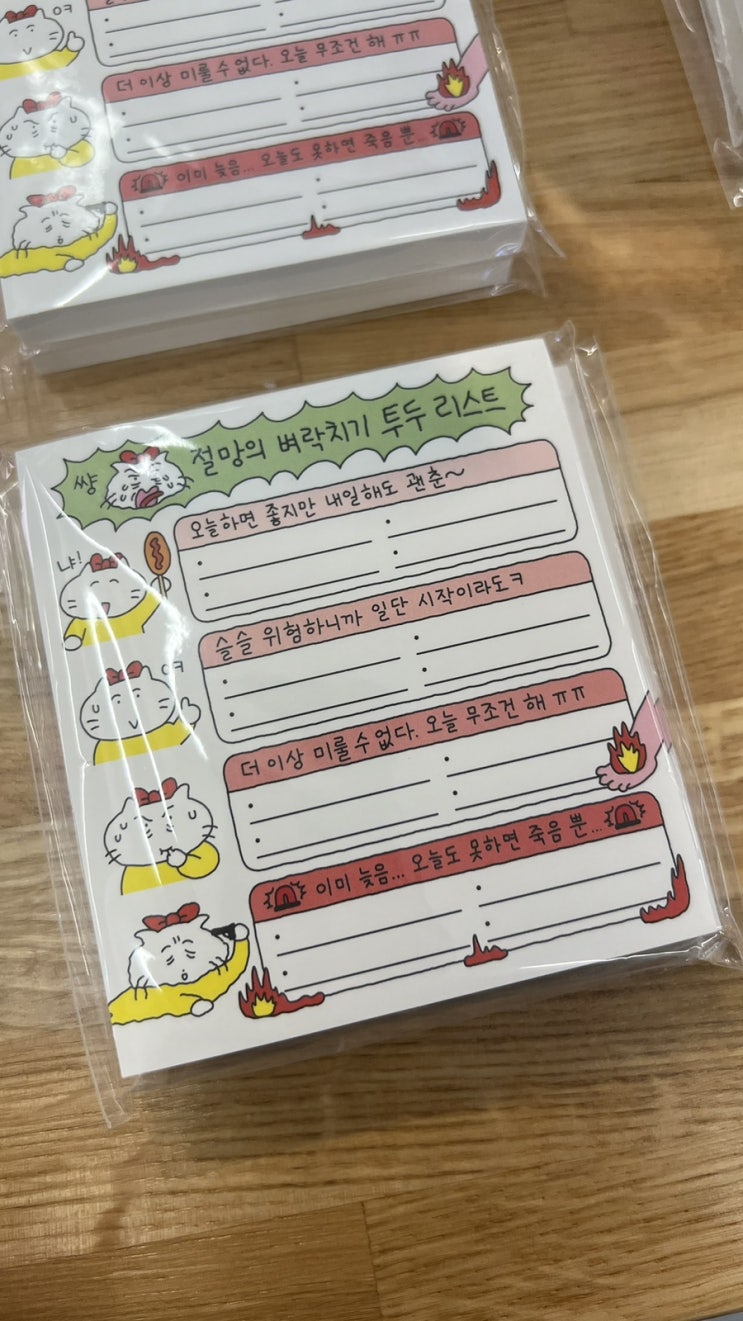 여
더 이상 미룰 수 없다. 오늘 무조건 해 ㅠㅠ
이미 늦음... 오늘도 못하면 죽음 뿐...
쌍 절망의 벼락치기 투두 리스트
오늘하면 좋지만 내일해도 괜춘~
냐!
슬슬 위험하니까 일단 시작이라도ㅋ
여
더 이상 미룰 수 없다. 오늘 무조건 해 ㅠㅠ
이미 늦음... 오늘도 못하면 죽음 뿐...